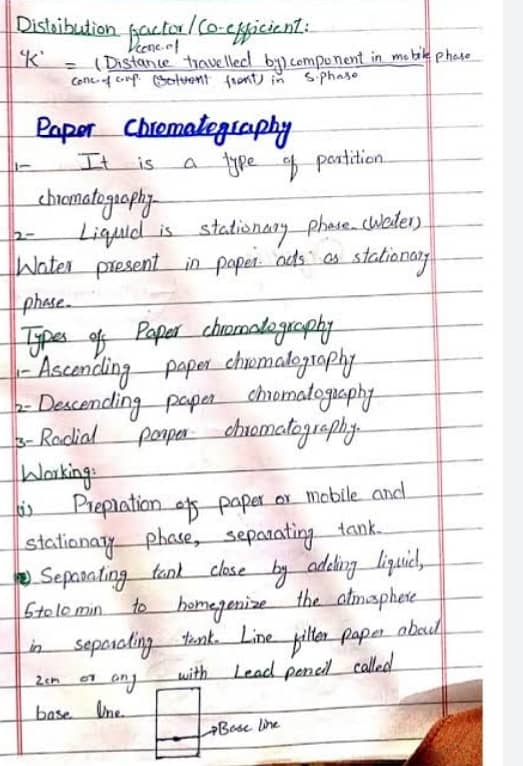 Distribution factor/Co-efficient:
conc. of
'K' = (Distance travelled by) component in mobile phase
Conc. of comp. (Solvent front) in S.phase
Paper Chromategraphy
1- It is a type of partition
chromatography.
2- Liquid is stationary phase. (Water)
Water present in paper acts as stationary
phase.
Types of Paper chromatography
1- Ascending paper chromatography
2- Descending paper chromatography
3- Radial paper chromatography.
Working:
(i) Prepration of paper or mobile and
stationary phase, separating tank.
2) Separating tank close by adding liquid,
5 to 10 min to homegenize the atmosphere
in separating tank. Line filter paper about
2cm or any with Lead pencil called
base line.
Base line